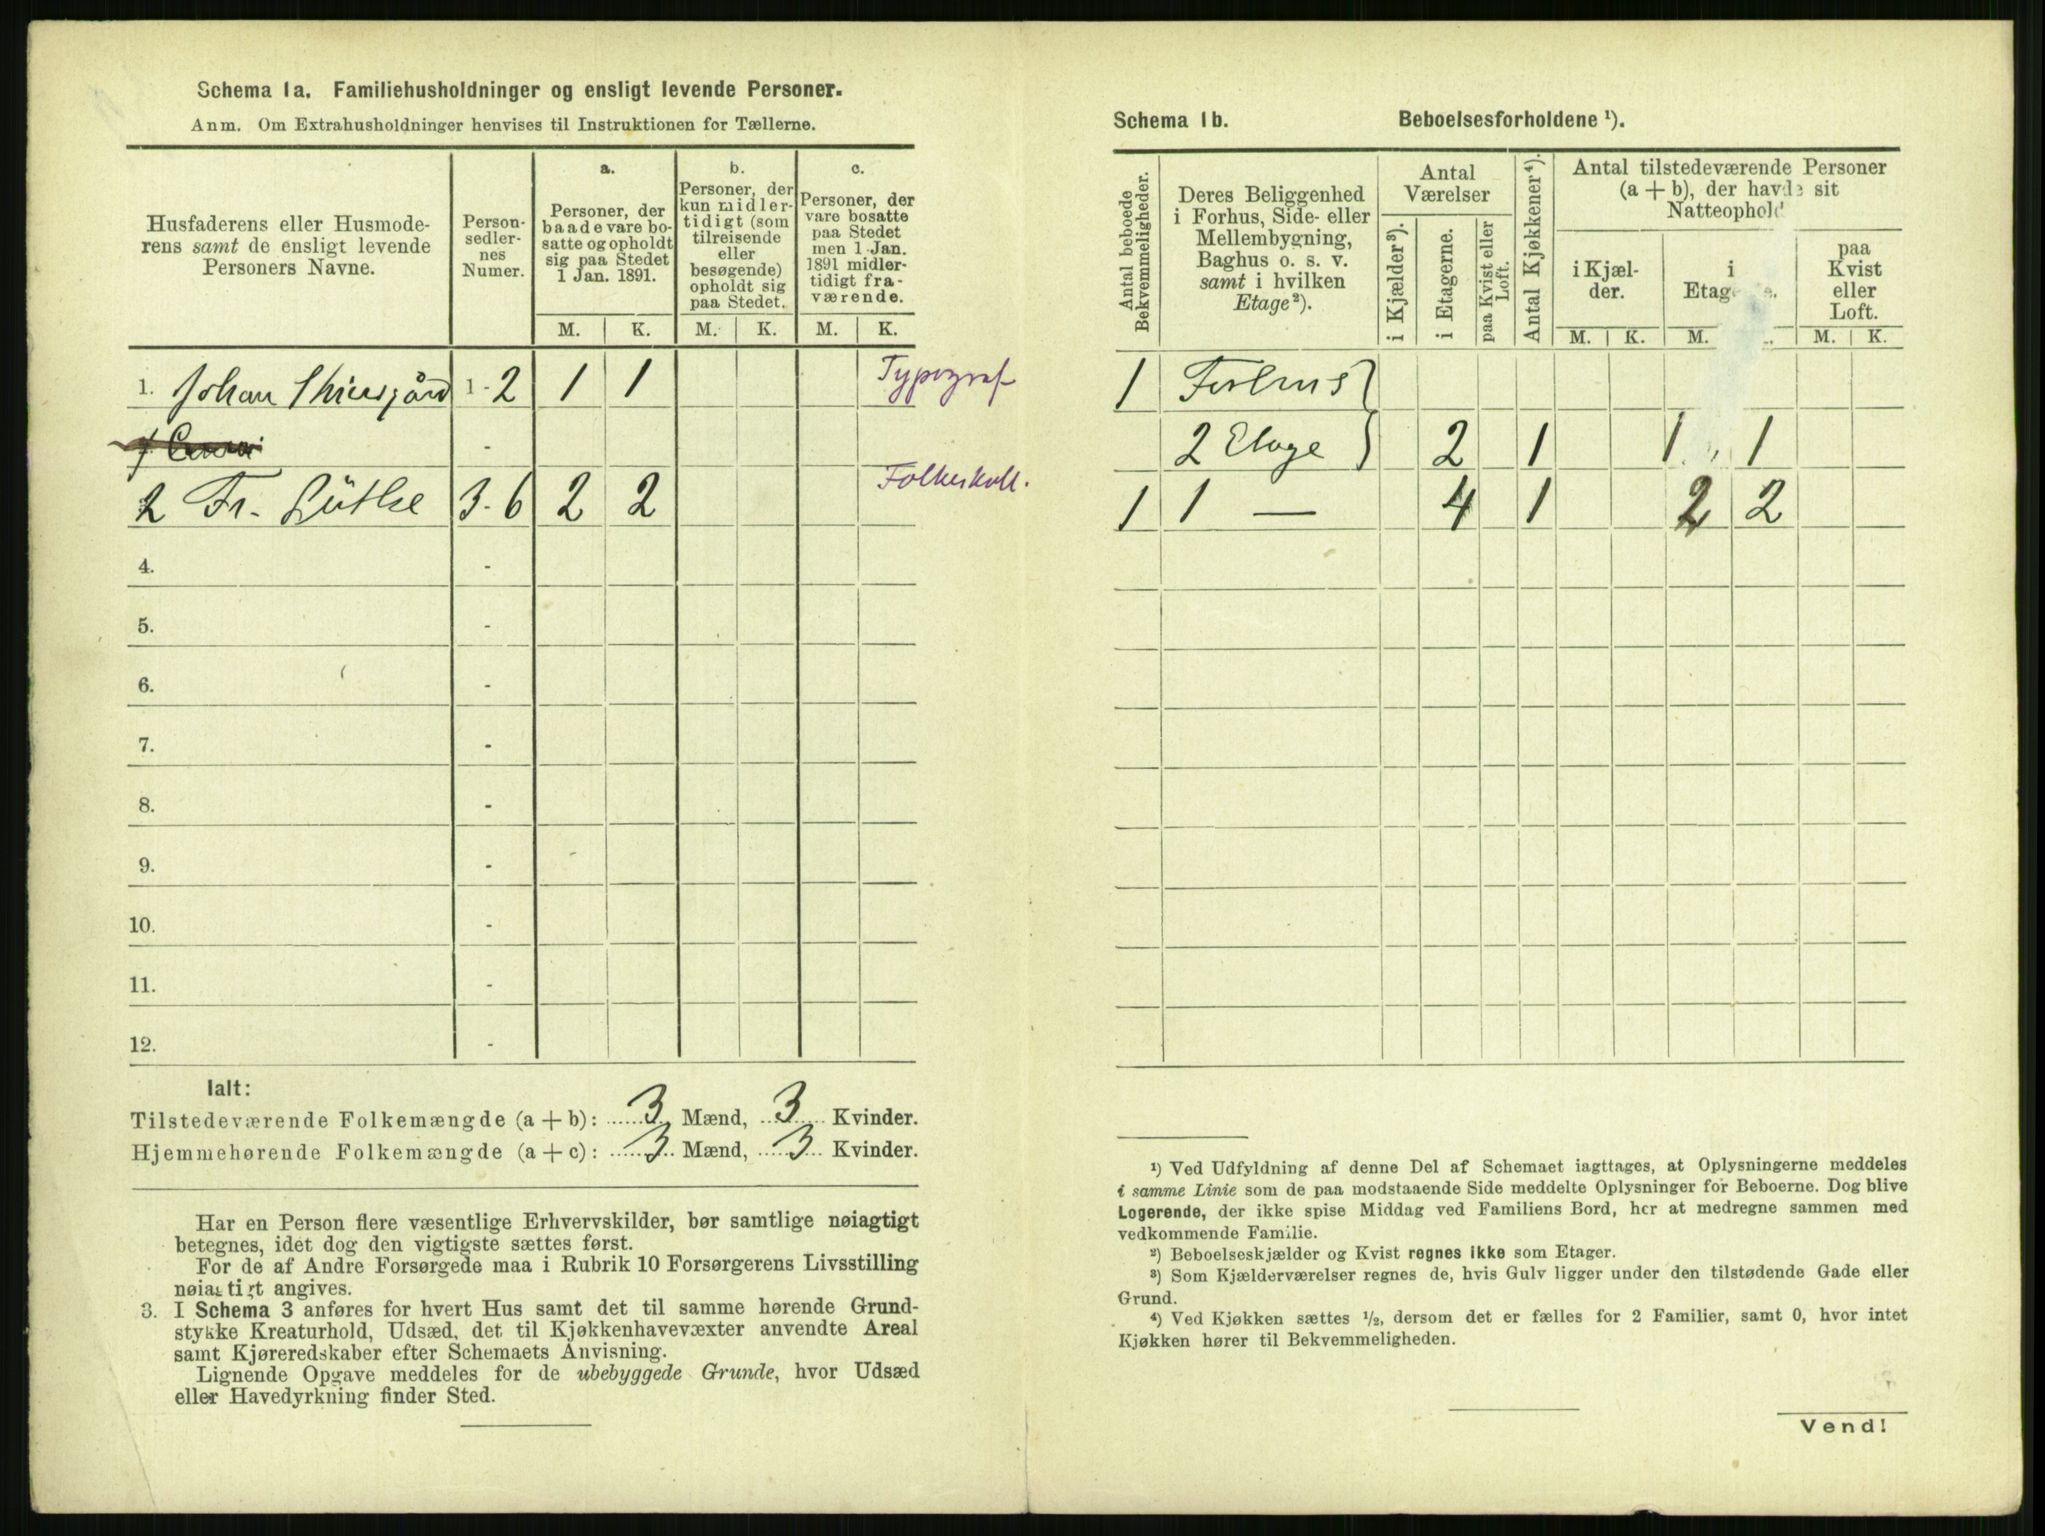 Schema 1a. Familiehusholdninger og ensligt levende Personer.
Anm. Om Extrahusholdninger henvises til Instruktionen for Tællerne.
Husfaderens eller Husmode-
rens samt de ensligt levende
Personers Navne.
Person-
sedler-
nes
Numer.
a.
Personer, der
baade vare bo-
satte og opholdt
sig paa Stedet
1 Jan. 1891.
b.
Personer, der
kun midler-
tidigt (som
tilreisende
eller
besøgende)
opholdt sig
paa Stedet.
c.
Personer, der
vare bosatte
paa Stedet
men 1 Jan.
1891 midler-
tidigt fra-
værende.
M. K. M. K. M. K.
1. Johan 1-2 1 1 Typograf
-
2 Fr. Lütke 3-6 2 2 Folkeskoll.
4. -
5. -
6. -
7. -
8. -
9. -
10. -
11. -
12. -
Ialt:
Tilstedeværende Folkemængde (a + b): 3 Mænd, 3 Kvinder.
Hjemmehørende Folkemængde (a + c): 3 Mænd, 3 Kvinder.
Har en Person flere væsentlige Erhvervskilder, bør samtlige nøiagtigt
betegnes, idet dog den vigtigste sættes først.
For de af Andre Forsørgede maa i Rubrik 10 Forsørgerens Livsstilling
nøiagtigt angives.
3. I Schema 3 anføres for hvert Hus samt det til samme hørende Grund-
stykke Kreaturhold, Udsæd, det til Kjøkkenhavevæxter anvendte Areal
samt Kjøreredskaber efter Schemaets Anvisning.
Lignende Opgave meddeles for de ubebyggede Grunde, hvor Udsæd
eller Havedyrkning finder Sted.
Schema 1b. Beboelsesforholdene ¹).
Antal beboede
Bekvemmeligheder.
Deres Beliggenhed
i Forhus, Side- eller
Mellembygning,
Baghus o. s. v.
samt i hvilken
Etage²).
Antal
Værelser
i Kjælder³).
i Etagerne.
paa Kvist eller
Loft.
Antal Kjøkkener⁴).
Antal tilstedeværende Personer
(a + b), der havde sit
Natteophold
i Kjæl-
der.
i
Etag
paa
Kvist
eller
Loft.
M. K. M. M. K.
1 Forhus }
2 Etage } 2 1 1 1
1 1 — 4 1 2 2
¹) Ved Udfyldning af denne Del af Schemaet iagttages, at Oplysningerne meddeles
i samme Linie som de paa modstaaende Side meddelte Oplysninger for Beboerne. Dog blive
Logerende, der ikke spise Middag ved Familiens Bord, her at medregne sammen med
vedkommende Familie.
²) Beboelseskjælder og Kvist regnes ikke som Etager.
³) Som Kjælderværelser regnes de, hvis Gulv ligger under den tilstødende Gade eller
Grund.
⁴) Ved Kjøkken sættes ½, dersom det er fælles for 2 Familier, samt 0, hvor intet
Kjøkken hører til Bekvemmeligheden.
Vend!